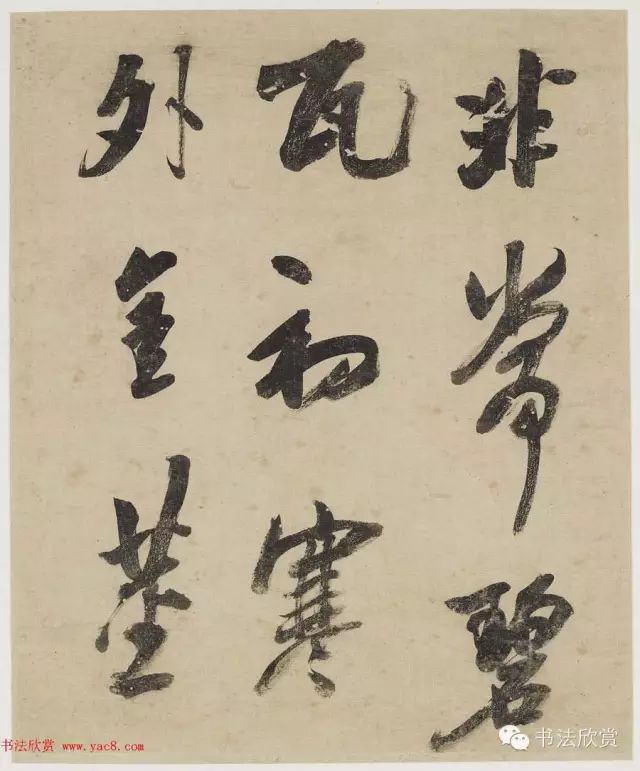 非常碧
瓦初寒
外金莖
书法欣赏 www.yac8.com
书法欣赏